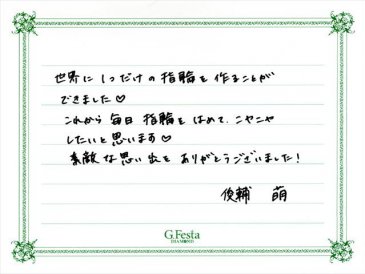 世界に1つだけの指輪を作ることが
できました♡
これから毎日指輪をはめて、ニヤニヤ
したいと思います♡
素敵な思い出をありがとうございました！
俊輔 萌
G.Festa
DIAMOND